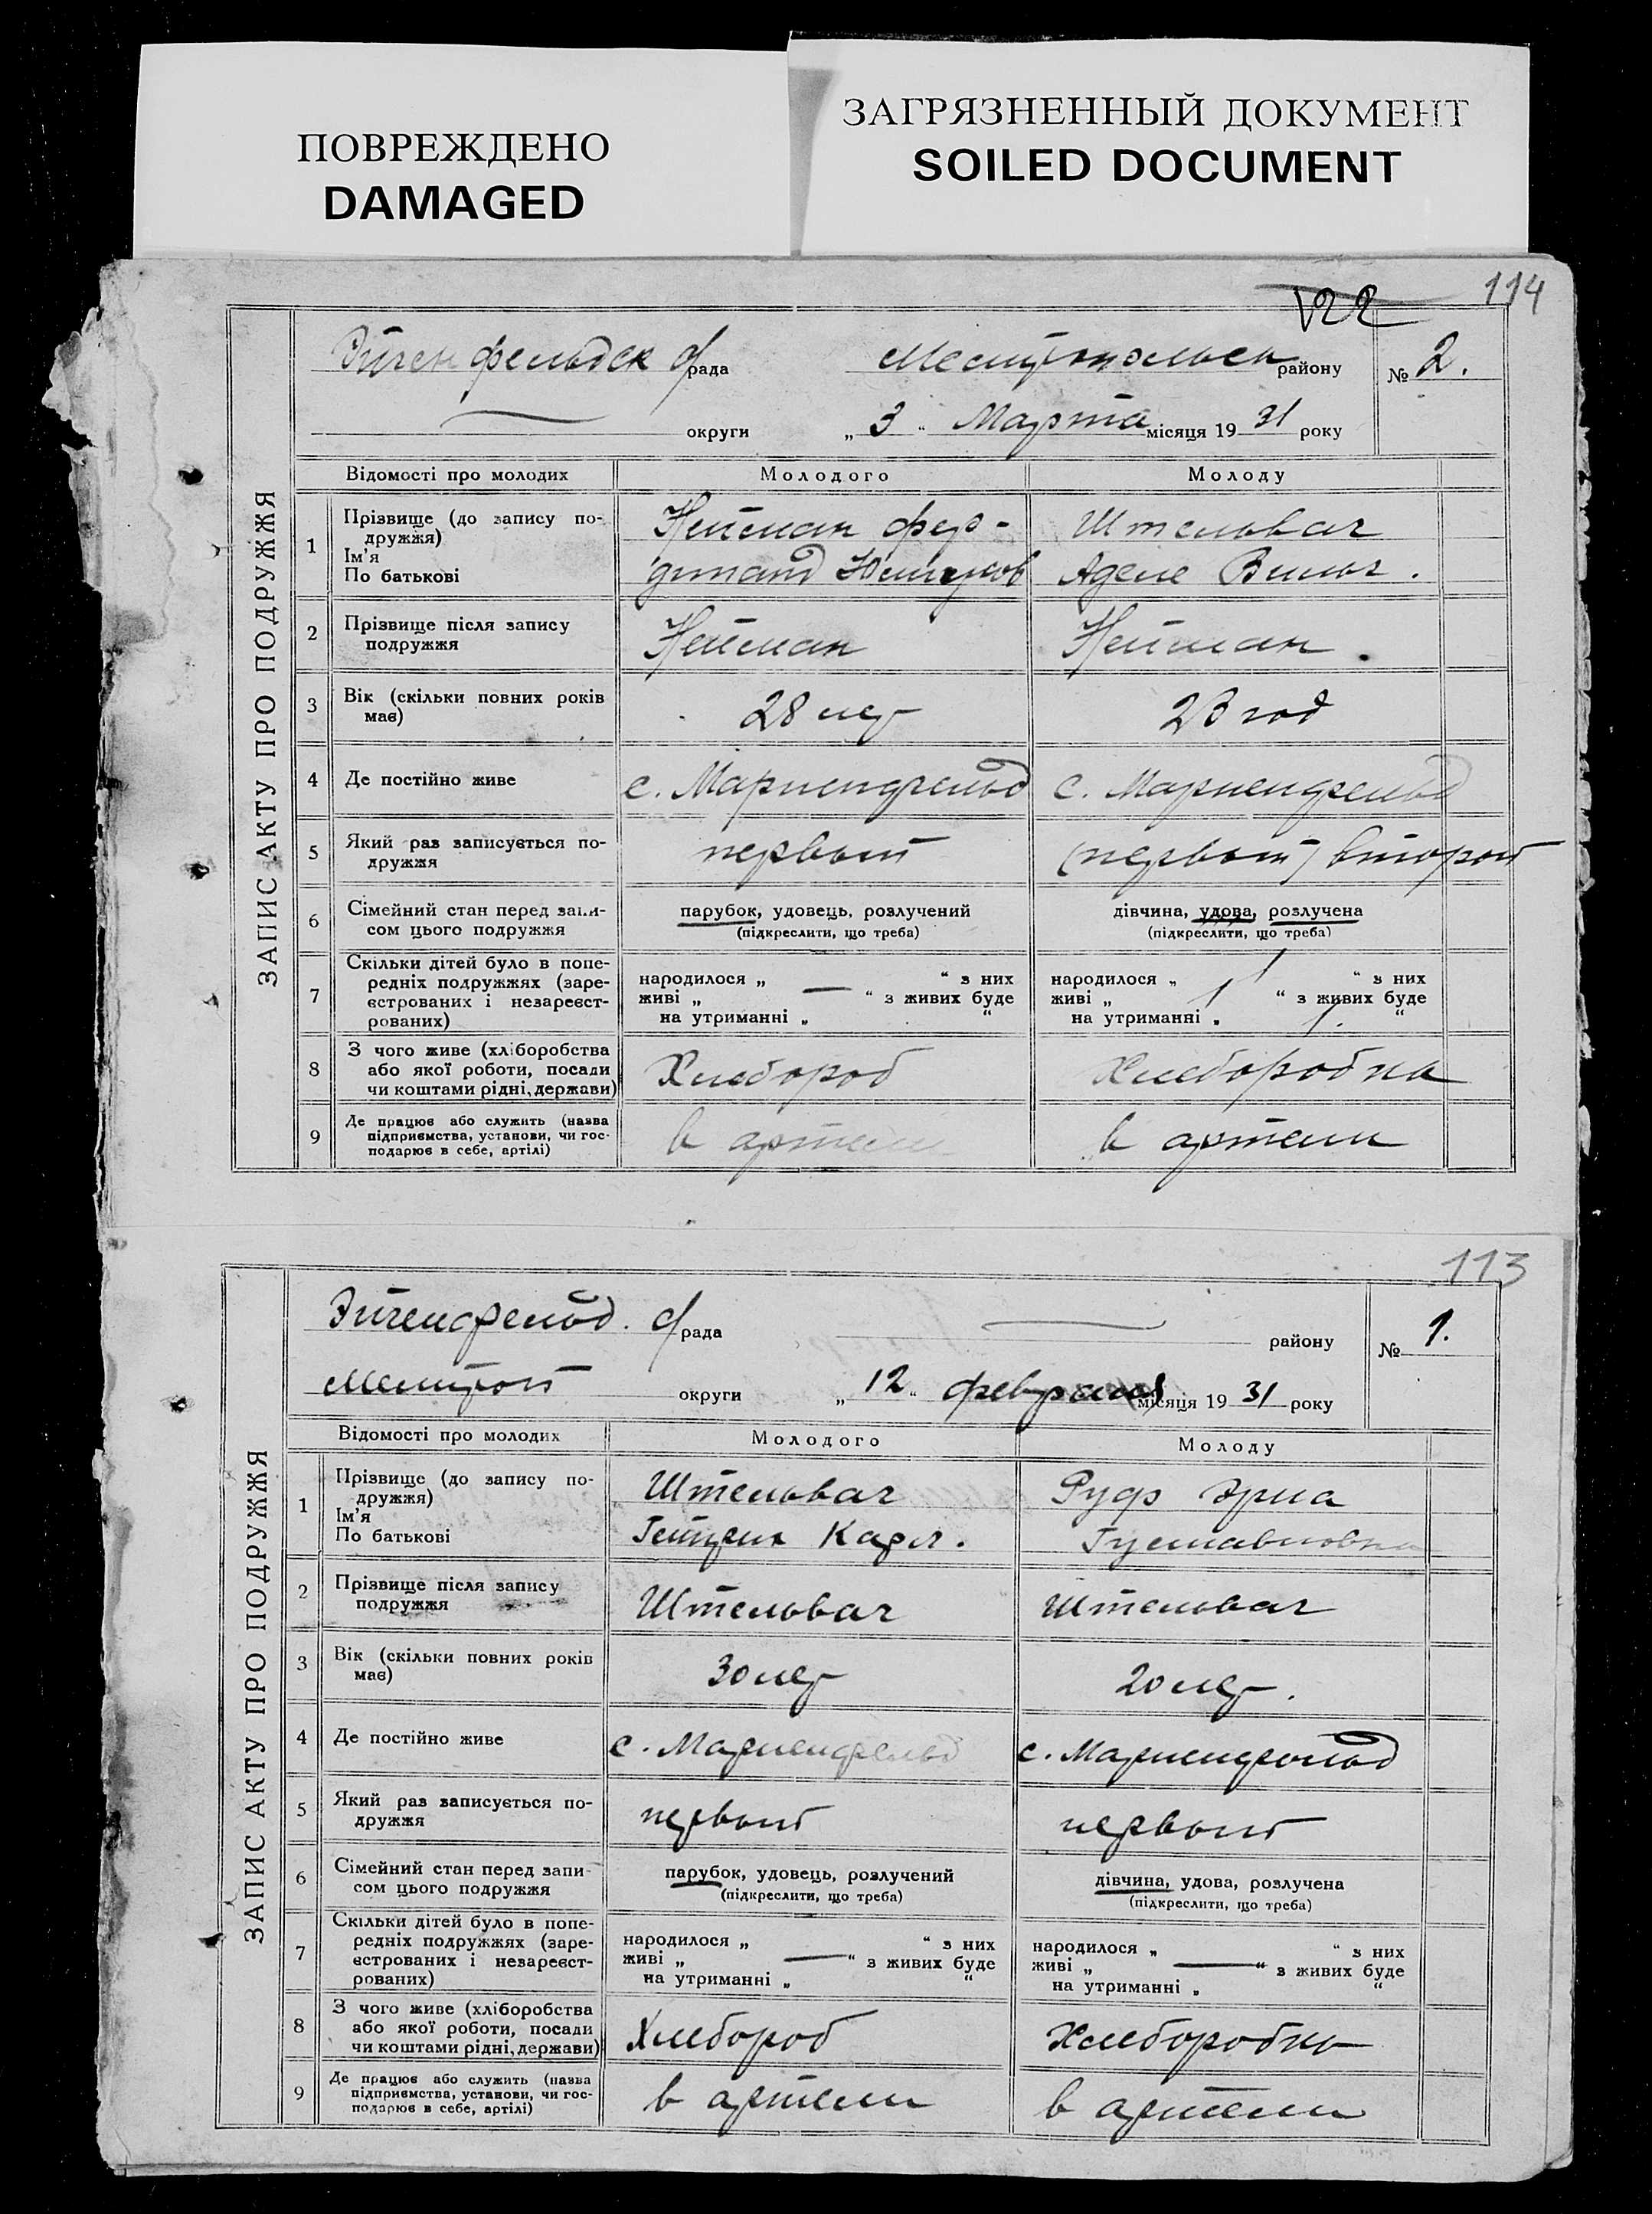 ПОВРЕЖДЕНО
DAMAGED
ЗАГРЯЗНЕННЫЙ ДОКУМЕНТ
SOILED DOCUMENT
114
122
ЗАПИС АКТУ ПРО ПОДРУЖЖЯ
рада району № 2.
округи „ 3 “ Марта місяця 19 31 року
Відомості про молодих Молодого Молоду
1 Прізвище (до запису подружжя) Ім'я По батькові
Нейман Фер- Штельвах
динанд Аделе Вильг.
2 Прізвище після запису подружжя Нейман Нейман.
3 Вік (скільки повних років має) 28 лет 23 год
4 Де постійно живе с. Мариенфельд с. Мариенфельд
5 Який раз записується подружжя первый (первый) второй
6 Сімейний стан перед записом цього подружжя парубок, удовець, розлучений дівчина, удова, розлучена
(підкреслити, що треба) (підкреслити, що треба)
7 Скільки дітей було в попередніх подружжях (зареєстрованих і незареєстрованих)
народилося „ — “ з них народилося „ 1 “ з них
живі „ “ з живих буде живі „ 1 “ з живих буде
на утриманні „ “ на утриманні „ 1. “
8 З чого живе (хліборобства або якої роботи, посади чи коштами рідні, держави) Хлебороб Хлеборобка
9 Де працює або служить (назва підприємства, установи, чи господарює в себе, артілі) в артели в артели
113
ЗАПИС АКТУ ПРО ПОДРУЖЖЯ
Эйгенфельд. с/рада — району № 1.
округи „ 12 “ февраля місяця 19 31 року
Відомості про молодих Молодого Молоду
1 Прізвище (до запису подружжя) Ім'я По батькові
Штельвах Руф Эрна
Гейнрих Карл. Густавовна
2 Прізвище після запису подружжя Штельвах Штельвах
3 Вік (скільки повних років має) 30 лет 20 лет.
4 Де постійно живе с. Мариенфельд с. Мариенфельд
5 Який раз записується подружжя первый первый
6 Сімейний стан перед записом цього подружжя парубок, удовець, розлучений дівчина, удова, розлучена
(підкреслити, що треба) (підкреслити, що треба)
7 Скільки дітей було в попередніх подружжях (зареєстрованих і незареєстрованих)
народилося „ “ з них народилося „ “ з них
живі „ — “ з живих буде живі „ — “ з живих буде
на утриманні „ “ на утриманні „ “
8 З чого живе (хліборобства або якої роботи, посади чи коштами рідні, держави) Хлебороб Хлеборобка
9 Де працює або служить (назва підприємства, установи, чи господарює в себе, артілі) в артели в артели